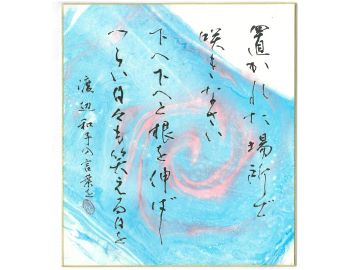 置かれた場所で
咲きなさい
下へ下へと根を伸ばし
つらい日々も笑える日を
渡辺和子の言葉を